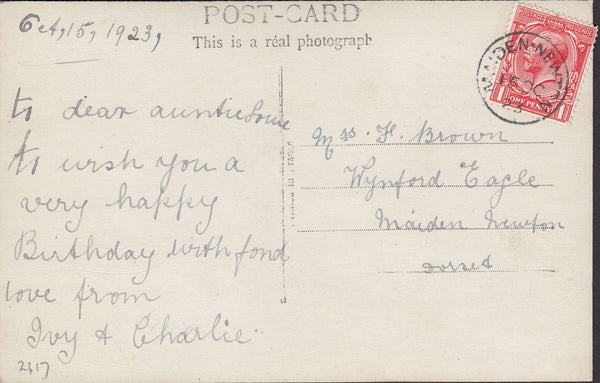 Oct, 15, 1923,
POST-CARD
This is a réal photograph
to dear auntie
to wish you a
very happy
Birthday with fond
love from
Ivy & Charlie
2617
Mrs. H. Brown
Wynford Eagle
Maiden Newton
Dorset
MAIDEN-NEWTON
15 OC
23
POSTAGE REVENUE
ONE PENNY
1 1